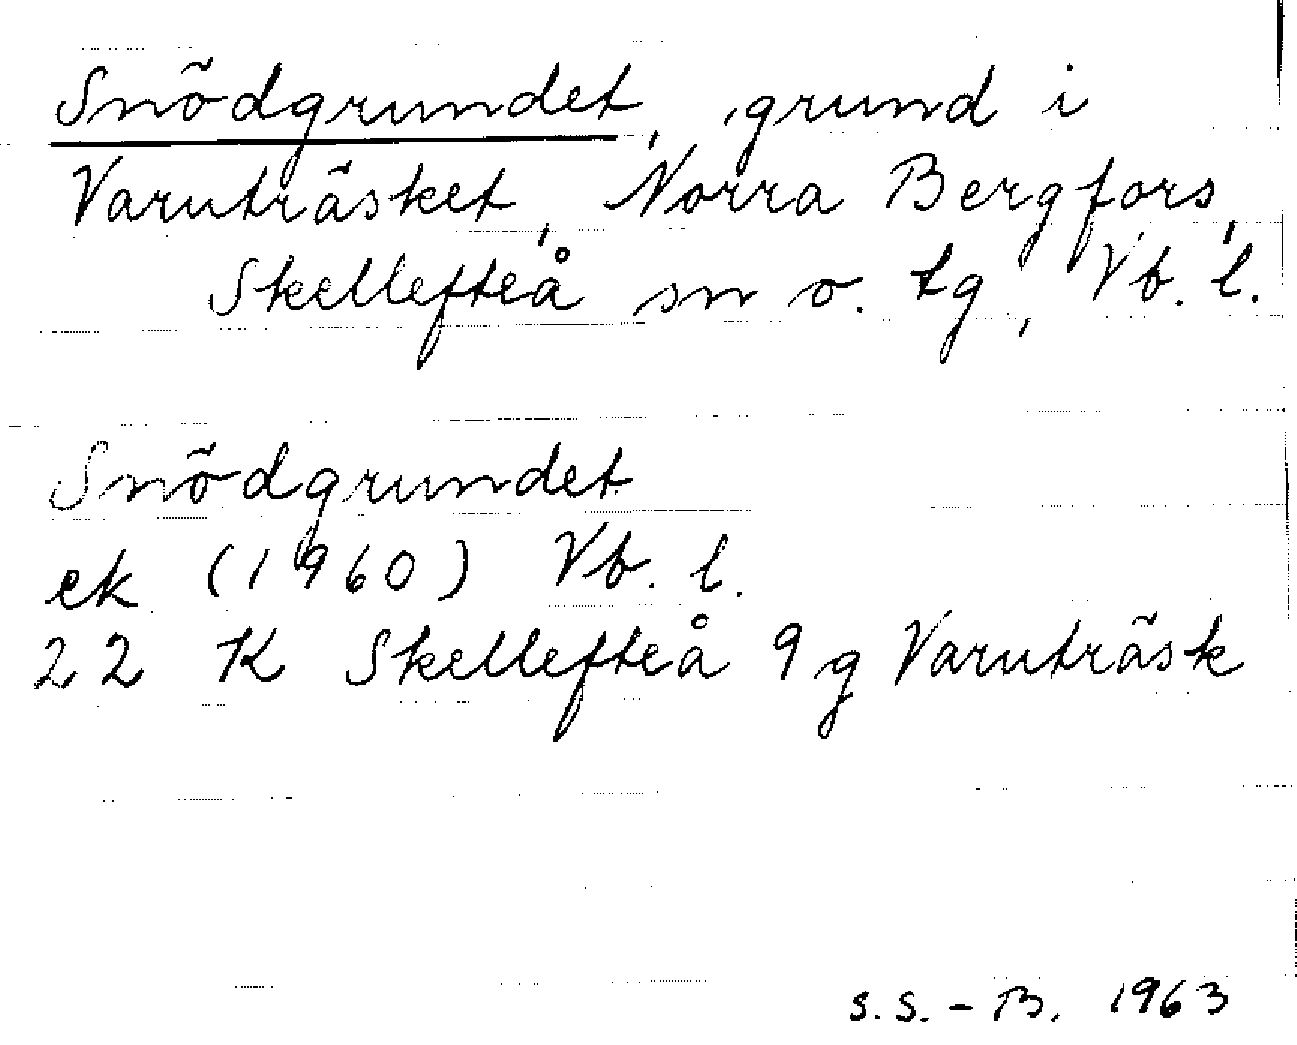 Snödgrundet, grund i
Varuträsket, Norra Bergfors,
Skellefteå sn o. tg, Vb. l.
Snödgrundet
ek (1960) Vb. l.
22 K Skellefteå 9 g Varuträsk
S.S.-B. 1963